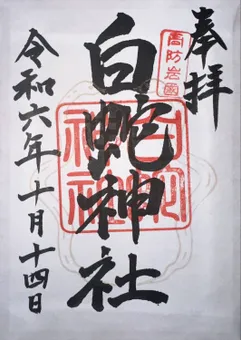 奉拝
周防岩国
白蛇神社
白蛇神社
令和六年十月十四日